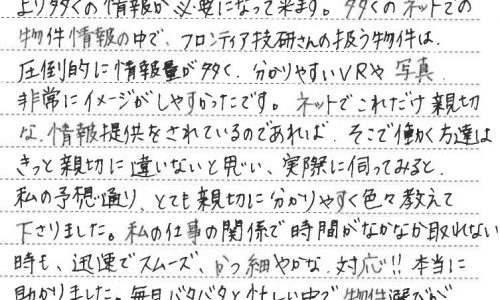 より多くの情報が必要になって来ます。多くのネットでの
物件情報の中で、フロンティア技研さんの扱う物件は、
圧倒的に情報量が多く、分かりやすいVRや写真
非常にイメージがしやすかったです。ネットでこれだけ親切
な情報提供をされているのであれば、そこで働く方達は
きっと親切に違いないと思い、実際に伺ってみると、
私の予想通り、とても親切に分かりやすく色々教えて
下さりました。私の仕事の関係で時間がなかなか取れない
時も、迅速でスムーズ、かつ細やかな対応!!本当に
助かりました。毎日バタバタと忙しい中で物件選びが